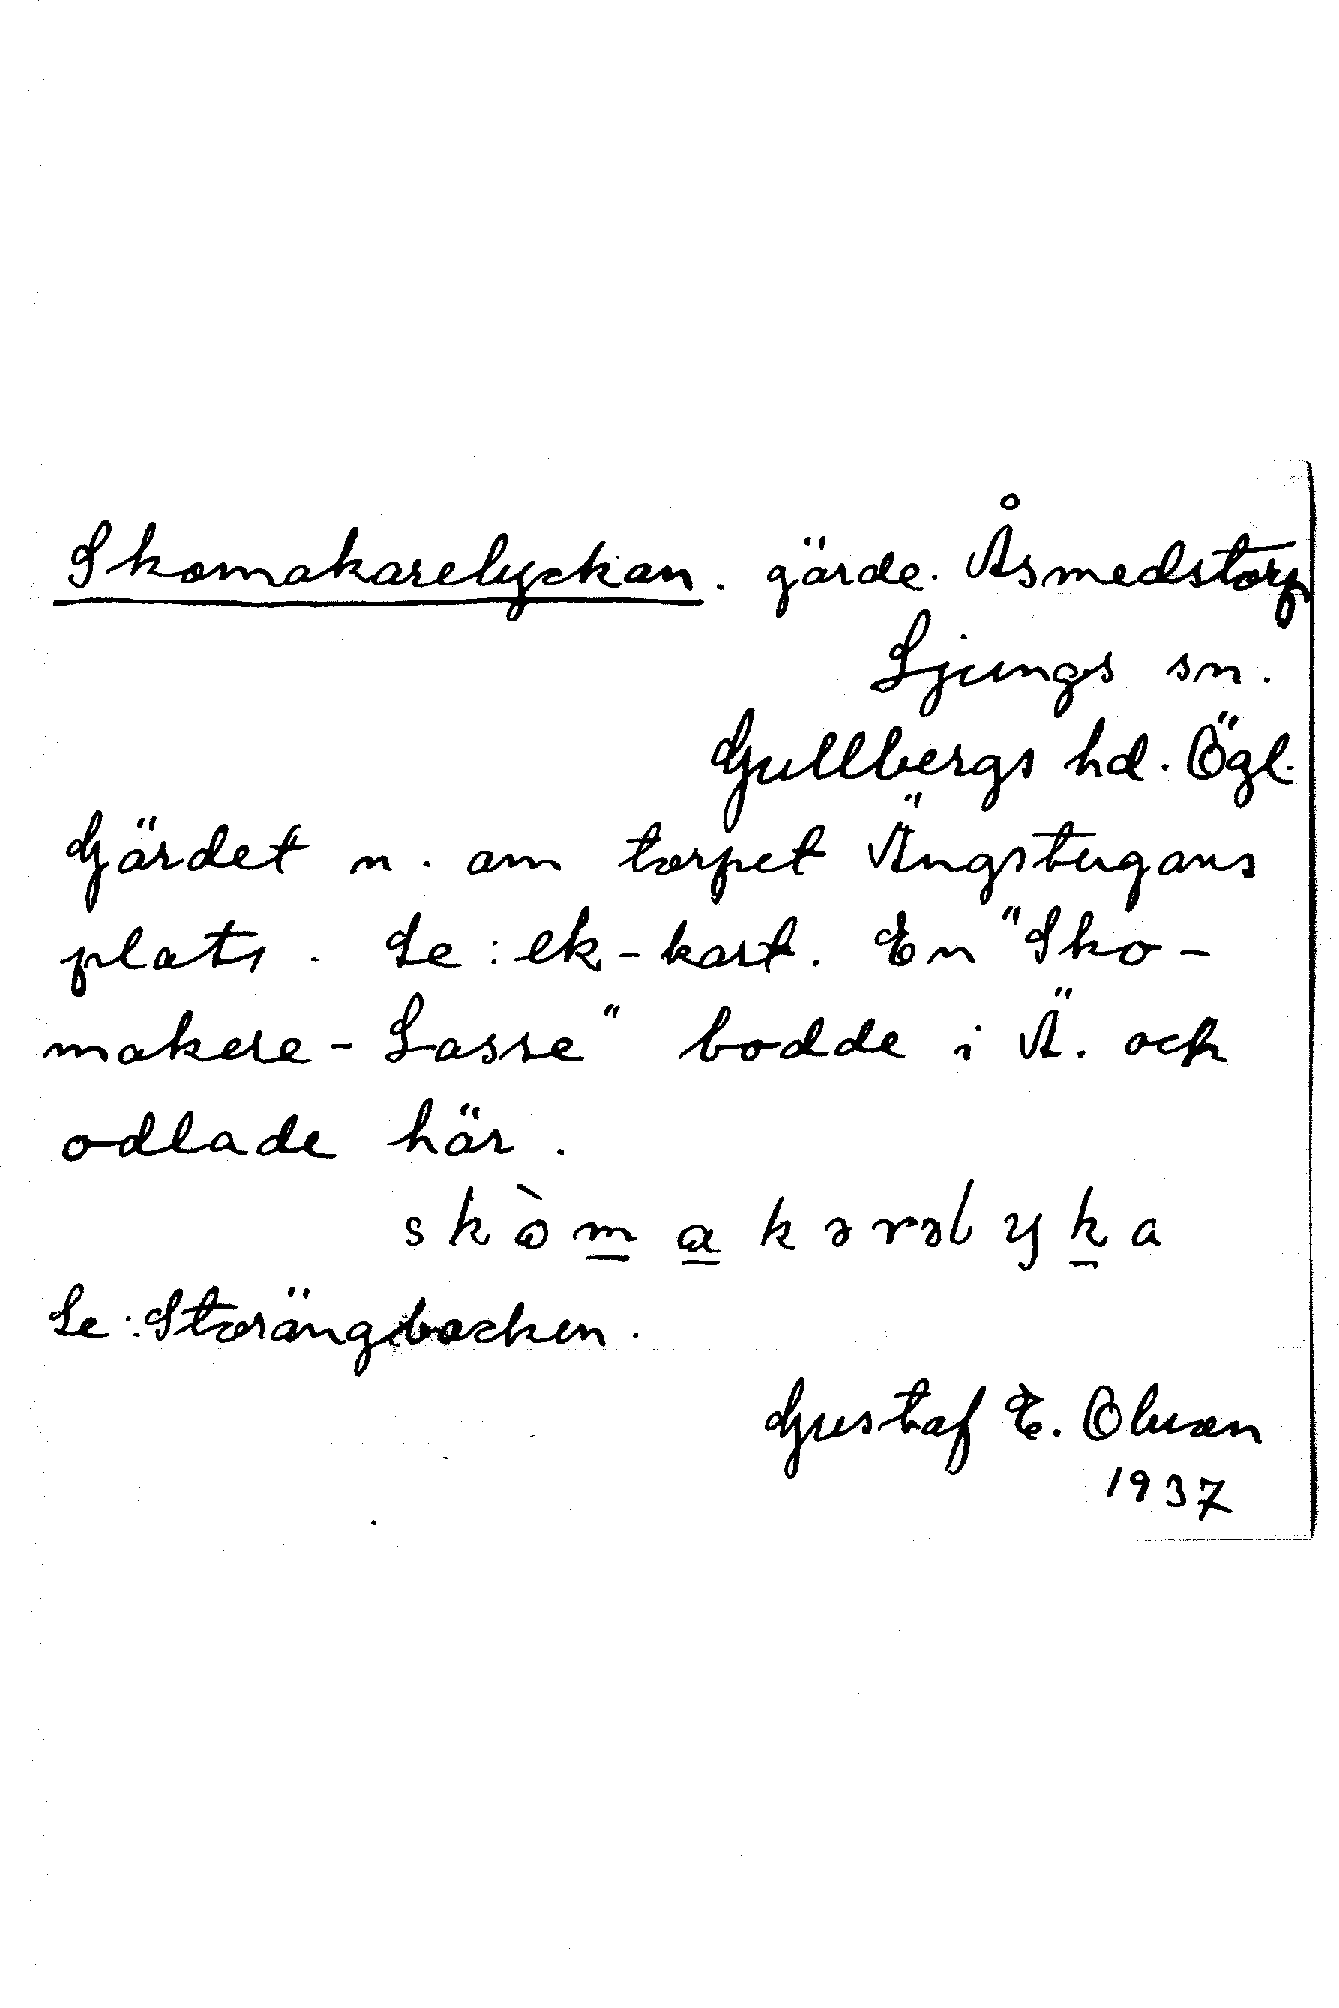 Skomakarelyckan. gärde. Åsmedstorp
Ljungs sn.
Gullbergs hd. Ögl.
Gärdet n. om torpet Ängstugans
plats. Se: ek-kart. En "Sko-
makere-Lasse" bodde i Ä. och
odlade här.
skòmakərəlyka
Se: Storängbacken.
Gustaf E. Olson
1937